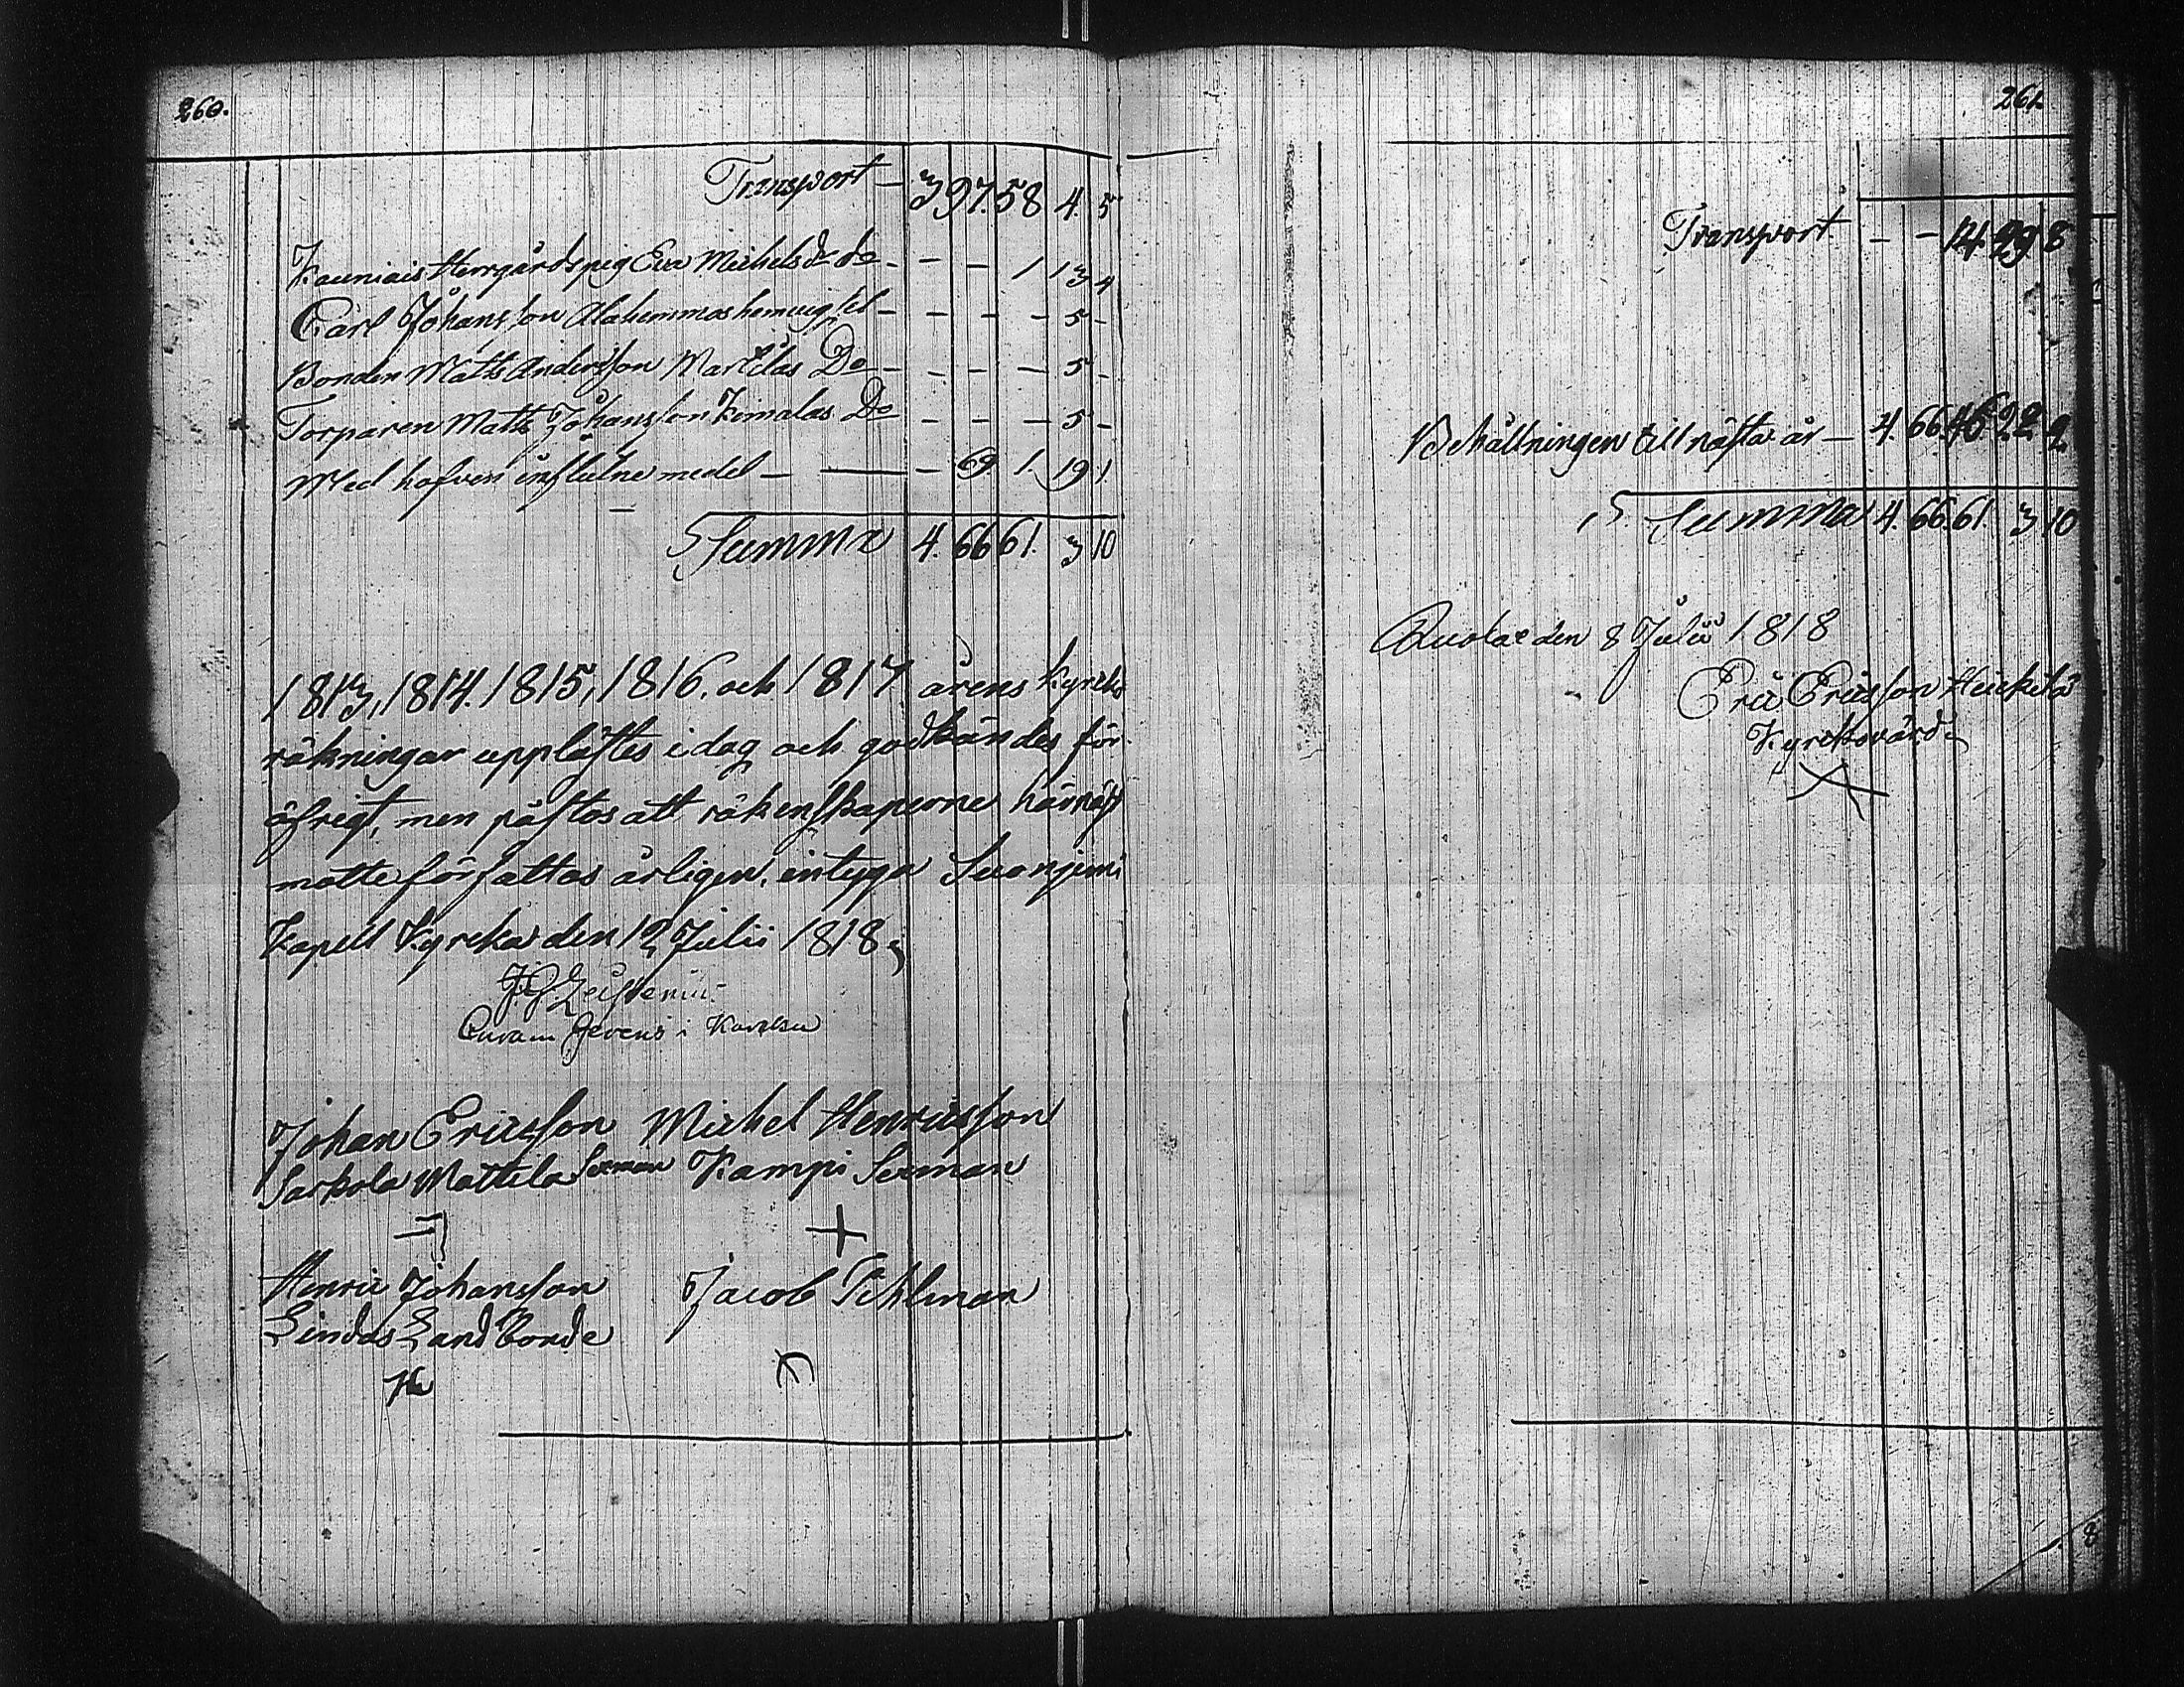 260.
Transport — 397. 58 4. 5
Kauniais Herrgårds pig Eva Michelsdr do - - - 1 13 4
Carl Johansson Alahemmos hemvigsel - - - - 5 -
Bonden Matts Andersson Markilas Do - - - - 5 -
Torparen Matts Johansson Keimalas Do - - - - 5 -
Med hafven influtne medel — — - 69 1. 19 1
Summa 4. 66 61. 3 10
1813, 1814. 1815, 1816. och 1817 årens kyrcko
räkningar upplästes i dag och godkändes för
öfrigt, men påstos att räkenskaperne härnäst
motte författas årligen, intyga Suonjemi
Kapell Kyrcka den 12 Julii 1818,
Curam Gerens i Karcku
Johan Ericsson Michel Henricsson
Sarkola Mattila Sexman Kampi Sexman
Henric Johansson Jacob Tihlman
Lindas Land Bonde
261.
Transport - - 14. 29 8
Behållningen till nästa år — 4. 66. 46 22 2
Summa 4. 66. 61. 3 10
den 8 Julii 1818
Eric Ericsson Heickilä
Kyrckovärd
8